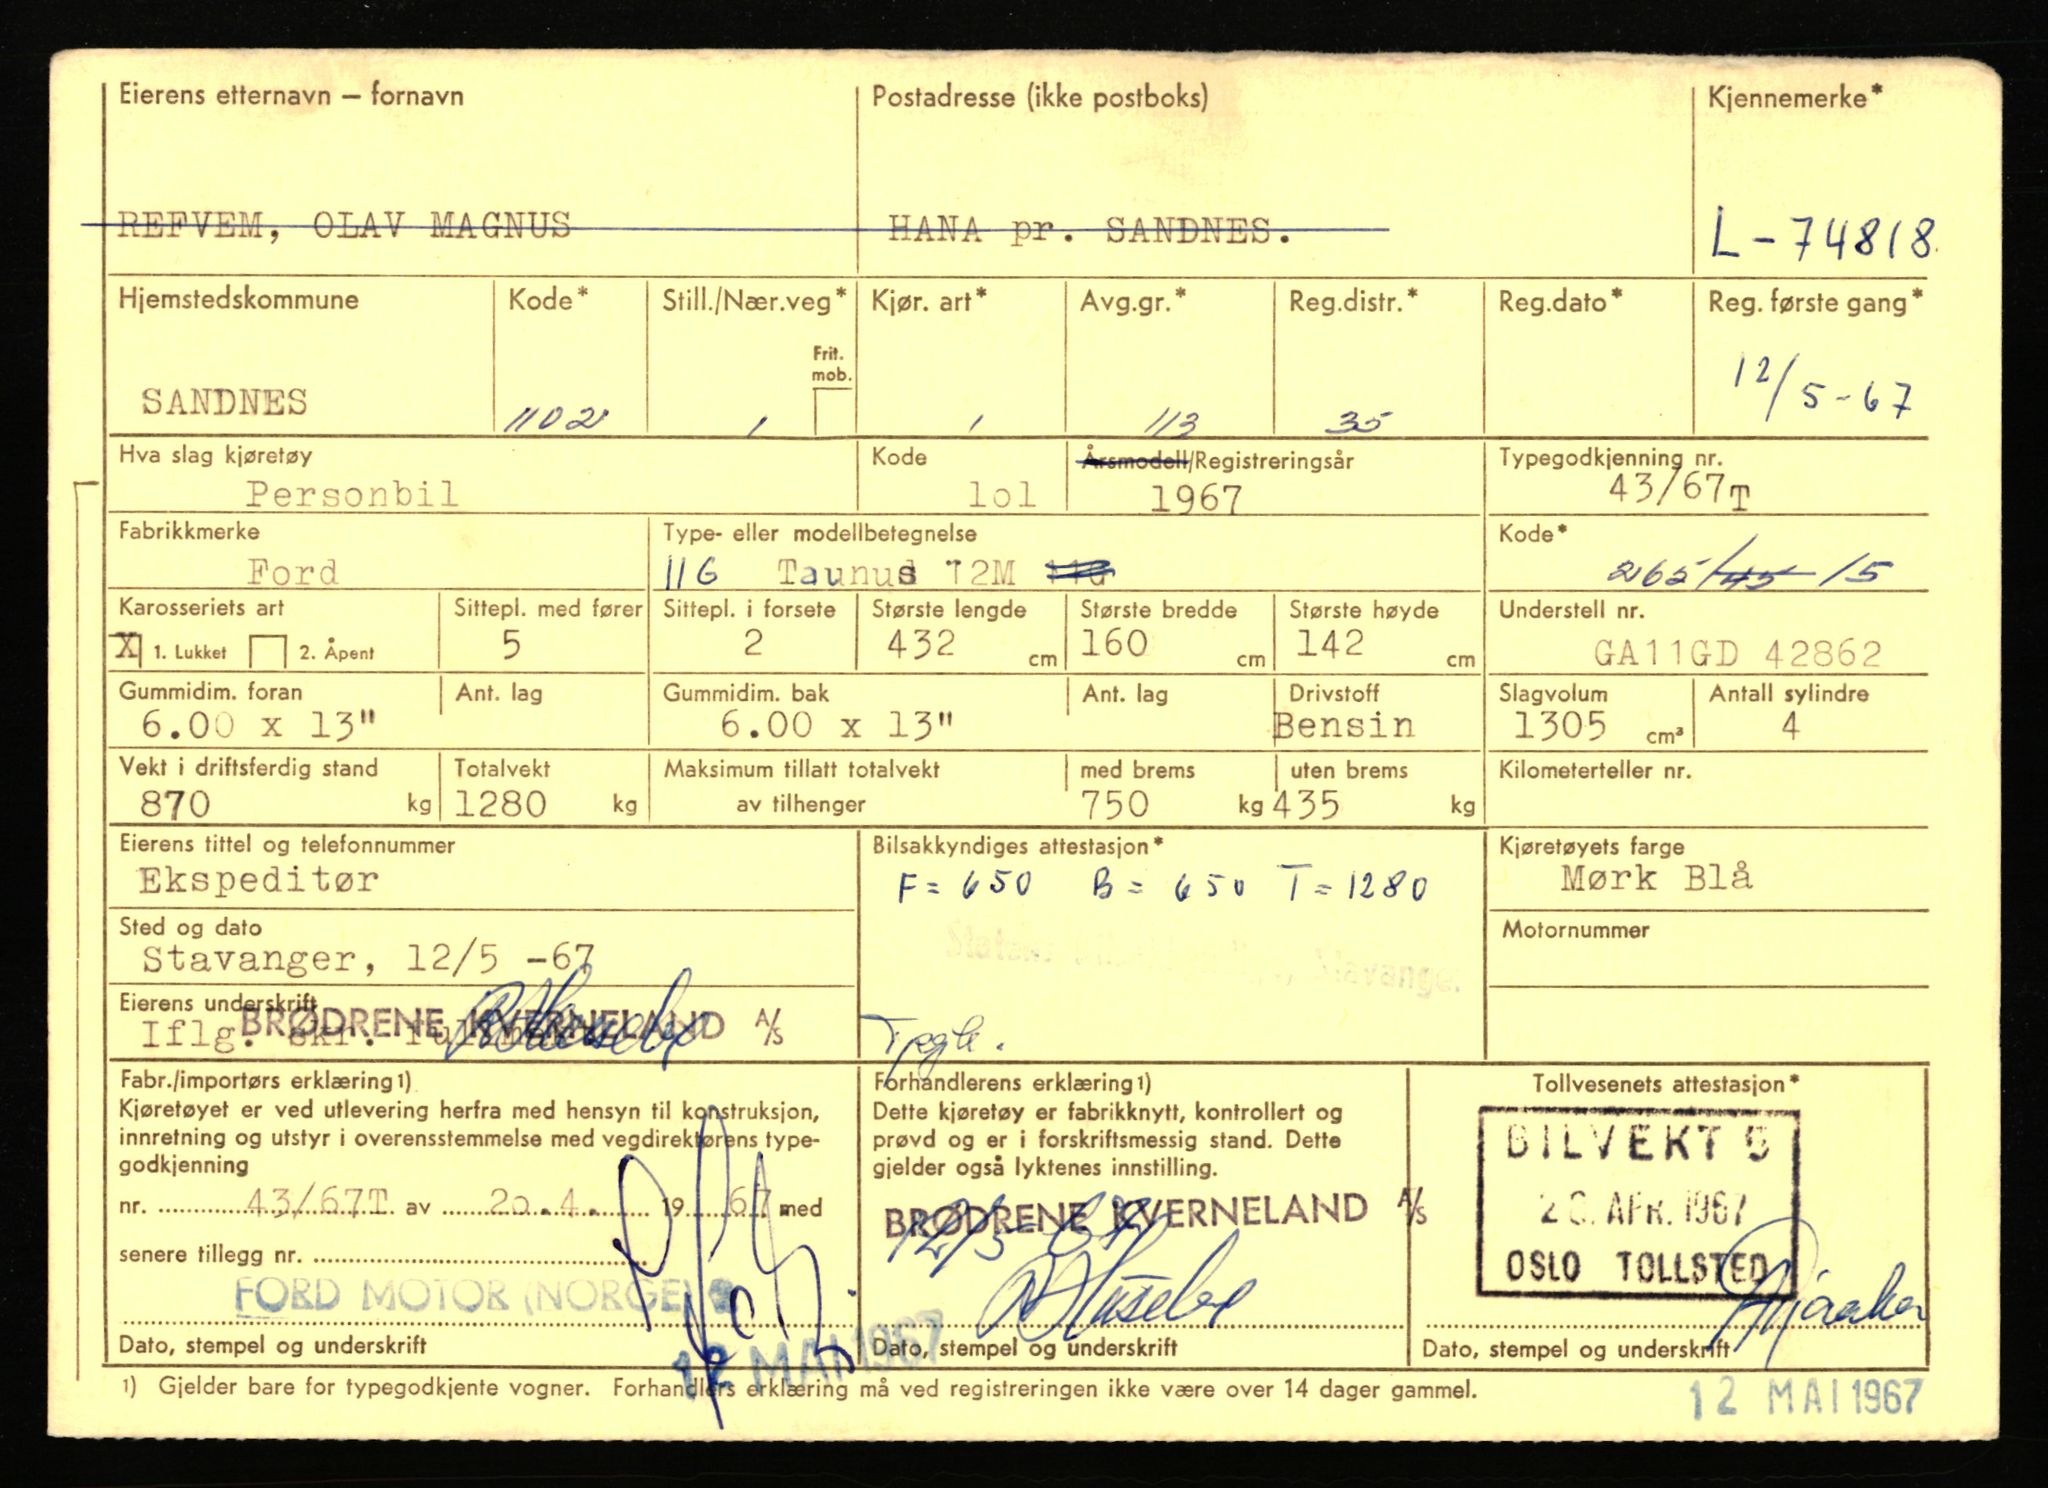 Eierens etternavn – fornavn Postadresse (ikke postboks) Kjennemerke*
REFVEM, OLAV MAGNUS HANA pr. SANDNES. L-74818
Hjemstedskommune Kode* Still./Nær.veg* Kjør. art* Avg.gr.* Reg.distr.* Reg.dato* Reg. første gang*
Frit. mob.
SANDNES 1102 1 1 113 35 12/5-67
Hva slag kjøretøy Kode Årsmodell/Registreringsår Typegodkjenning nr.
Personbil lol 1967 43/67T
Fabrikkmerke Type- eller modellbetegnelse Kode*
Ford 11G Taunus 12M 265/45 15
Karosseriets art Sittepl. med fører Sittepl. i forsete Største lengde Største bredde Største høyde Understell nr.
X 1. Lukket 2. Åpent 5 2 432 cm 160 cm 142 cm GA11GD 42862
Gummidim. foran Ant. lag Gummidim. bak Ant. lag Drivstoff Slagvolum Antall sylindre
6.00 x 13" 6.00 x 13" Bensin 1305 cm³ 4
Vekt i driftsferdig stand Totalvekt Maksimum tillatt totalvekt med brems uten brems Kilometerteller nr.
870 kg 1280 kg av tilhenger 750 kg 435 kg
Eierens tittel og telefonnummer Bilsakkyndiges attestasjon* Kjøretøyets farge
Ekspeditør F = 650 B = 650 T = 1280 Mørk Blå
Sted og dato Motornummer
Stavanger, 12/5 -67
Eierens underskrift
BRØDRENE KVERNELAND A/S
Iflg. skr.
Fabr./importørs erklæring1) Forhandlerens erklæring1) Tollvesenets attestasjon*
Kjøretøyet er ved utlevering herfra med hensyn til konstruksjon, innretning og utstyr i overensstemmelse med vegdirektørens type-
godkjenning
nr. 43/67T av 20.4. 1967 med
senere tillegg nr.
FORD MOTOR (NORGE)
Dato, stempel og underskrift
12 MAI 1967
Dette kjøretøy er fabrikknytt, kontrollert og
prøvd og er i forskriftsmessig stand. Dette
gjelder også lyktenes innstilling.
BRØDRENE KVERNELAND A/S
12/5-67
Dato, stempel og underskrift
BILVEKT S
APR. 1967
OSLO TOLLSTED
Dato, stempel og underskrift
1) Gjelder bare for typegodkjente vogner. Forhandlers erklæring må ved registreringen ikke være over 14 dager gammel.
12 MAI 1967